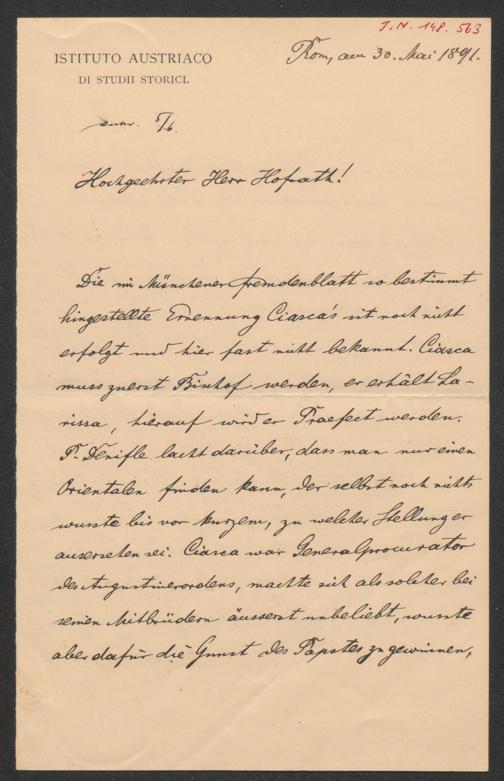 I.N. 148.563
ISTITUTO AUSTRIACO
DI STUDII STORICI.
Rom, am 30. Mai 1891.
5/6.
Hochgeehrter Herr Hofrath!
Die im Münchener Fremdenblatt so bestimmt
hingestellte Ernennung Ciasca's ist noch nicht
erfolgt und hier fast nicht bekannt. Ciasca
muss zuerst Bischof werden, er erhält La-
rissa, hierauf wird er Praefect werden.
P. Denifle lacht darüber, dass man nur einen
Orientalen finden kann, der selbst noch nichts
wusste bis vor kurzem, zu welcher Stellung er
ausersehen sei. Ciasca war Generalprocurator
des Augustinerordens, machte sich als solcher bei
seinen Mitbrüdern äusserst unbeliebt, wusste
aber dafür die Gunst des Papstes zu gewinnen,